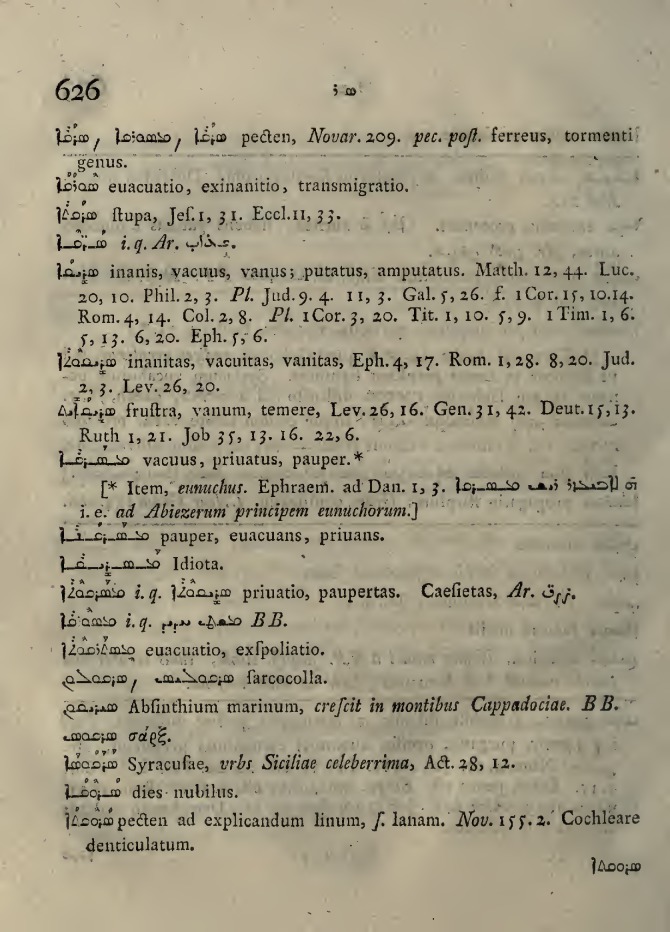 626 ܣ ܪ
pecten, Novar. 209. pec. poſt. ferreus, tormenti
genus.
ܣܘܪܩܐ euacuatio, exinanitio, transmigratio.
ſtupa, Jeſ. 1, 31. Eccl. 11, 33.
i. q. Ar.
ܣܪܝܩܐ inanis, vacuus, vanus; putatus, amputatus. Matth. 12, 44. Luc.
20, 10. Phil. 2, 3. Pl. Jud. 9. 4. 11, 3. Gal. 5, 26. ſ. 1 Cor. 15, 10. 14.
Rom. 4, 14. Col. 2, 8. Pl. 1 Cor. 3, 20. Tit. 1, 10. 5, 9. 1 Tim. 1, 6.
5, 13. 6, 20. Eph. 5, 6.
ܣܪܝܩܘܬܐ inanitas, vacuitas, vanitas, Eph. 4, 17. Rom. 1, 28. 8, 20. Jud.
2, 3. Lev. 26, 20.
ܣܪܝܩܐܝܬ fruſtra, vanum, temere, Lev. 26, 16. Gen. 31, 42. Deut. 15, 13.
Ruth 1, 21. Job 35, 13. 16. 22, 6.
ܡܣܪܩܐ vacuus, priuatus, pauper. *
[* Item, eunuchus. Ephraem. ad Dan. 1, 3.
i. e. ad Abiezerum principem eunuchorum.]
ܡܣܪܩܢܐ pauper, euacuans, priuans.
Idiota.
ܡܣܪܩܘܬܐ i. q. ܣܪܝܩܘܬܐ priuatio, paupertas. Caeſietas, Ar. زرقة.
i. q. B B.
euacuatio, exſpoliatio.
ſarcocolla.
Abſinthium marinum, creſcit in montibus Cappadociae. B B.
σάρξ.
Syracuſae, vrbs Siciliae celeberrima, Act. 28, 12.
dies nubilus.
pecten ad explicandum linum, ſ. lanam. Nov. 155. 2. Cochleare
denticulatum.